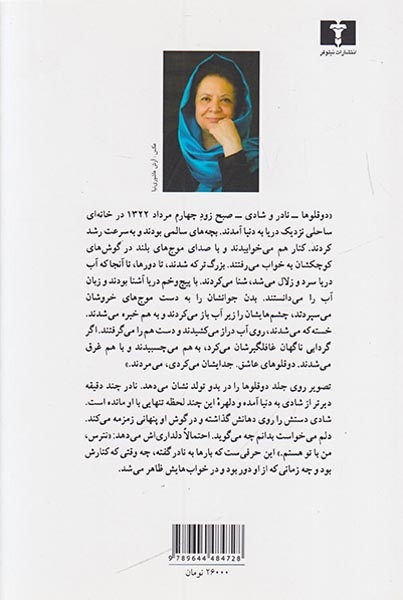 انتشارات نیلوفر
عکس: آرش عاشوری‌نیا
«دوقلوها ـ نادر و شادی ـ صبح زودِ چهارم مرداد ۱۳۲۲ در خانه‌ای
ساحلی نزدیک دریا به دنیا آمدند. بچه‌های سالمی بودند و به‌سرعت رشد
کردند. کنار هم می‌خوابیدند و با صدای موج‌های بلند در گوش‌های
کوچکشان به خواب می‌رفتند. بزرگ‌تر که شدند، تا دورها، تا آنجا که آب
دریا سرد و زلال می‌شد، شنا می‌کردند. با پیچ‌وخم دریا آشنا بودند و زبان
آب را می‌دانستند. بدن جوانشان را به دست موج‌های خروشان
می‌سپردند، چشم‌هایشان را زیر آب باز می‌کردند و به هم خیره می‌شدند.
خسته که می‌شدند، روی آب دراز می‌کشیدند و دست هم را می‌گرفتند. اگر
گردابی ناگهان غافلگیرشان می‌کرد، به هم می‌چسبیدند و با هم غرق
می‌شدند. دوقلوهای عاشق. جدایشان می‌کردی، می‌مردند.»
تصویر روی جلد دوقلوها را در بدو تولد نشان می‌دهد. نادر چند دقیقه
دیرتر از شادی به دنیا آمده و دلهرهٔ این چند لحظه تنهایی با او مانده است.
شادی دستش را روی دهانش گذاشته و در گوش او پنهانی زمزمه می‌کند.
دلم می‌خواست بدانم چه می‌گوید. احتمالاً دلداری‌اش می‌دهد: «نترس،
من با تو هستم.» این حرفی‌ست که بارها به نادر گفته، چه وقتی که کنارش
بود و چه زمانی که از او دور بود و در خواب‌هایش ظاهر می‌شد.
9 789644 484728
۲۶۰۰۰ تومان